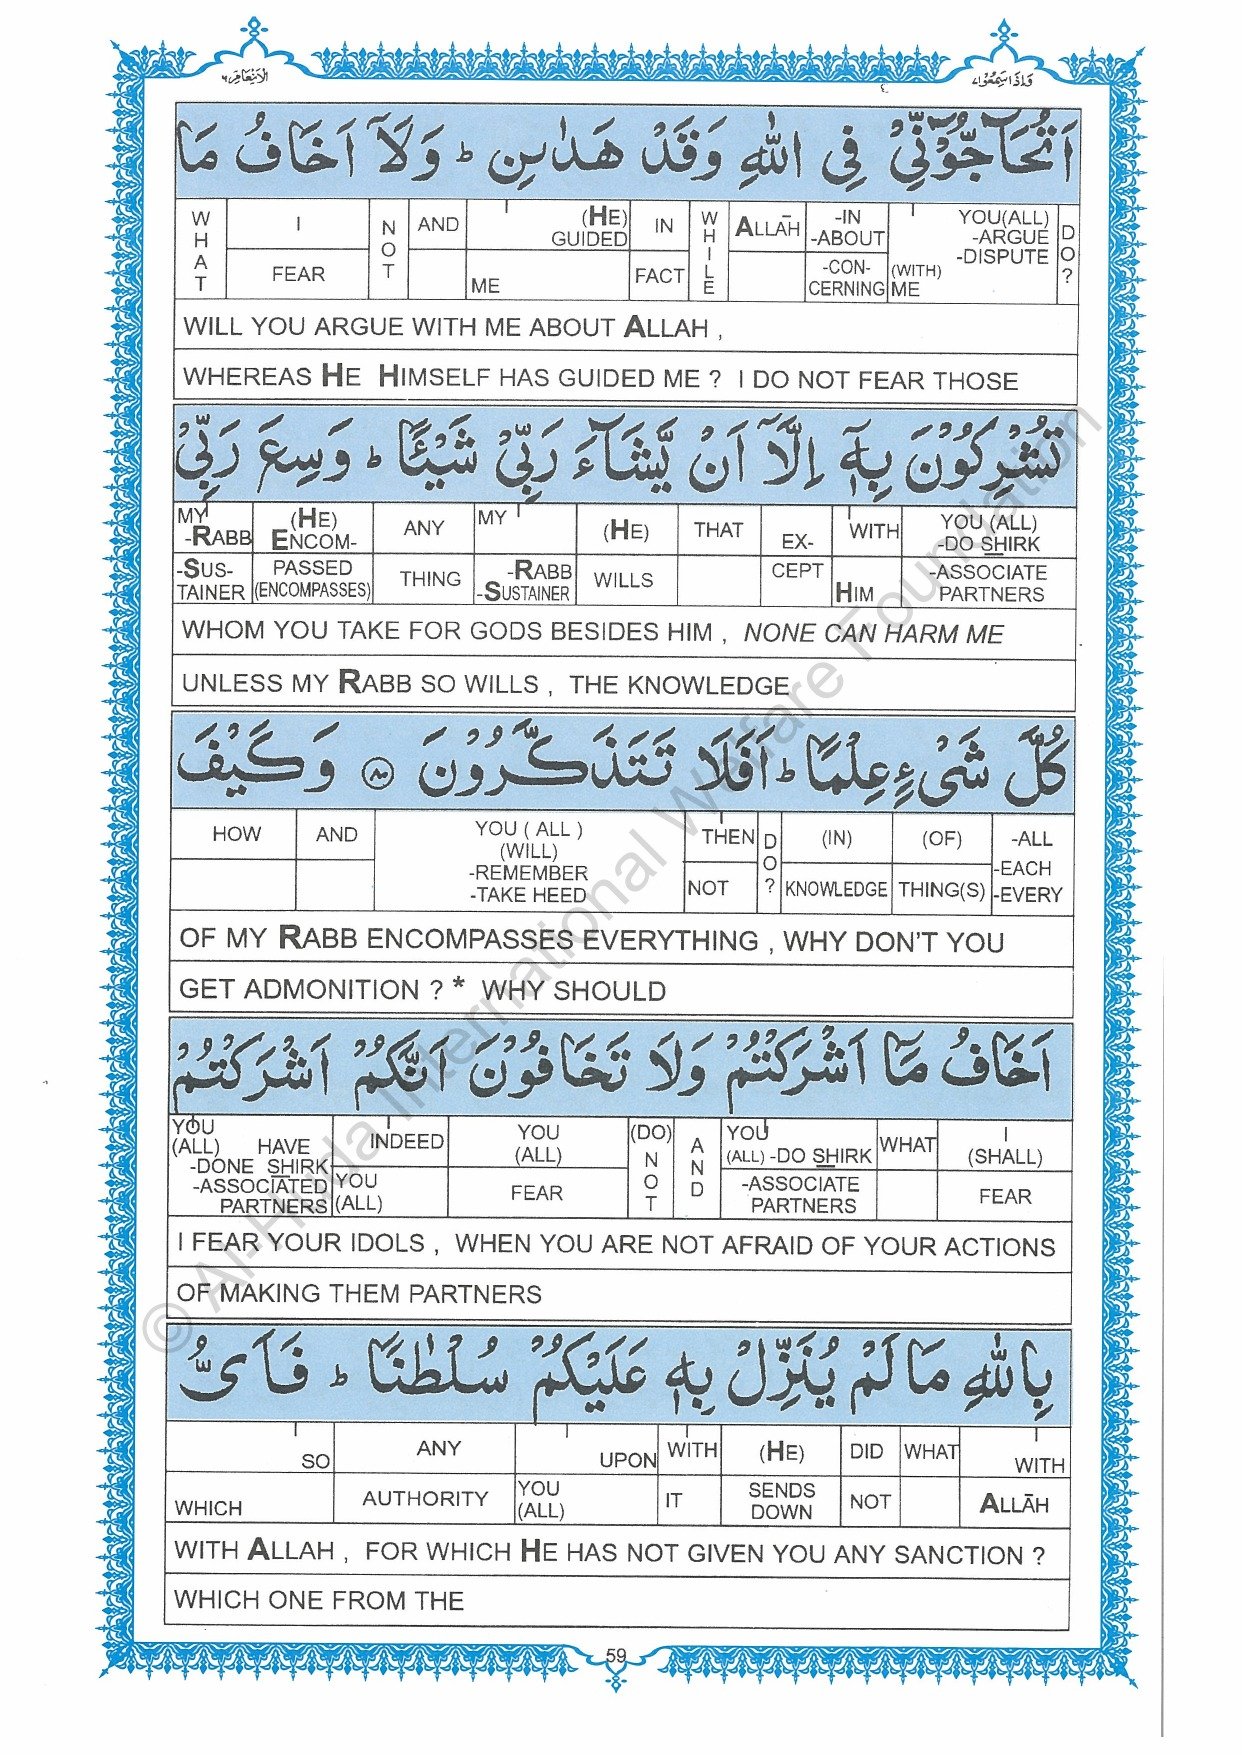 وَاِذَا سَمِعُوْا٧
الْاَنْعَام٦
اَتُحَآجُّوْٓنِّىْ فِى اللّٰهِ وَقَدْ هَدٰىنِ ؕ وَلَآ اَخَافُ مَا
WHAT | I | NOT | AND | (HE) GUIDED | IN | WHILE | ALLĀH | -IN -ABOUT | YOU(ALL) -ARGUE -DISPUTE | DO?
FEAR | ME | FACT | -CON- CERNING | (WITH) ME
WILL YOU ARGUE WITH ME ABOUT ALLAH ,
WHEREAS HE HIMSELF HAS GUIDED ME ? I DO NOT FEAR THOSE
تُشْرِكُوْنَ بِهٖٓ اِلَّآ اَنْ يَّشَآءَ رَبِّىْ شَيْئًا ؕ وَسِعَ رَبِّىْ
MY -RABB | (HE) ENCOM- | ANY | MY | (HE) | THAT | EX- | WITH | YOU (ALL) -DO SHIRK
-SUS- TAINER | PASSED (ENCOMPASSES) | THING | -RABB -SUSTAINER | WILLS | CEPT | HIM | -ASSOCIATE PARTNERS
WHOM YOU TAKE FOR GODS BESIDES HIM , NONE CAN HARM ME
UNLESS MY RABB SO WILLS , THE KNOWLEDGE
كُلَّ شَىْءٍ عِلْمًا ؕ اَفَلَا تَتَذَكَّرُوْنَ ﴿٨٠﴾ وَكَيْفَ
HOW | AND | YOU ( ALL ) (WILL) -REMEMBER -TAKE HEED | THEN | DO? | (IN) | (OF) | -ALL -EACH -EVERY
NOT | KNOWLEDGE | THING(S)
OF MY RABB ENCOMPASSES EVERYTHING , WHY DON'T YOU
GET ADMONITION ? * WHY SHOULD
اَخَافُ مَآ اَشْرَكْتُمْ وَلَا تَخَافُوْنَ اَنَّكُمْ اَشْرَكْتُمْ
YOU (ALL) HAVE -DONE SHIRK -ASSOCIATED PARTNERS | INDEED | YOU (ALL) | (DO) NOT | AND | YOU (ALL) -DO SHIRK | WHAT | I (SHALL)
YOU (ALL) | FEAR | -ASSOCIATE PARTNERS | FEAR
I FEAR YOUR IDOLS , WHEN YOU ARE NOT AFRAID OF YOUR ACTIONS
OF MAKING THEM PARTNERS
بِاللّٰهِ مَا لَمْ يُنَزِّلْ بِهٖ عَلَيْكُمْ سُلْطٰنًا ؕ فَاَىُّ
SO | ANY | UPON | WITH | (HE) | DID | WHAT | WITH
WHICH | AUTHORITY | YOU (ALL) | IT | SENDS DOWN | NOT | ALLĀH
WITH ALLAH , FOR WHICH HE HAS NOT GIVEN YOU ANY SANCTION ?
WHICH ONE FROM THE
59
© Al-Huda International Welfare Foundation